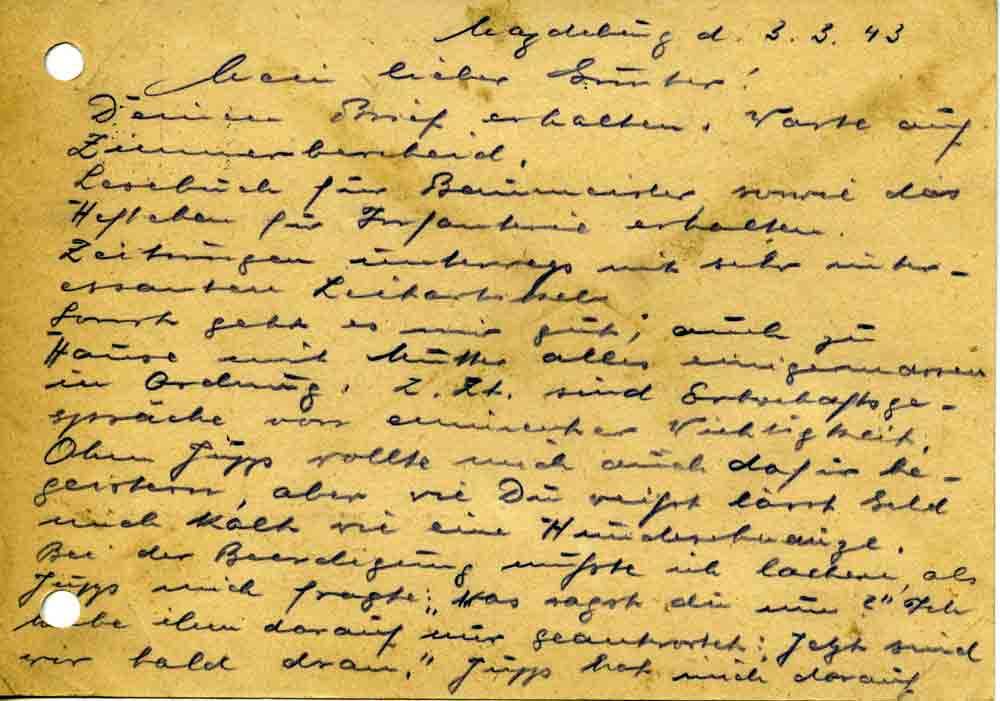 Magdeburg d. 3. 3. 43
Mein lieber Günter!
Deinen Brief erhalten. Warte auf
Zimmerbescheid.
Lesebuch für Baumeister sowie das
Heftchen für Infanterie erhalten.
Zeitungen unterwegs mit sehr inter-
essanten Leitartikeln
Sonst geht es mir gut; auch zu
Hause mit Mutter alles einigermassen
in Ordnung. Z. Zt. sind Erbschaftsge-
spräche von eminenter Wichtigkeit.
Ohm Jupp wollte mich auch dafür be-
geistern, aber wie Du weißt lässt Geld
mich kalt wie eine Hundeschnauze.
Bei der Beerdigung mußte ich lachen, als
Jupp mich fragte: "Was sagst du nun?" Ich
habe ihm darauf nur geantwortet: Jetzt sind
wir bald dran." Jupp hat mich darauf